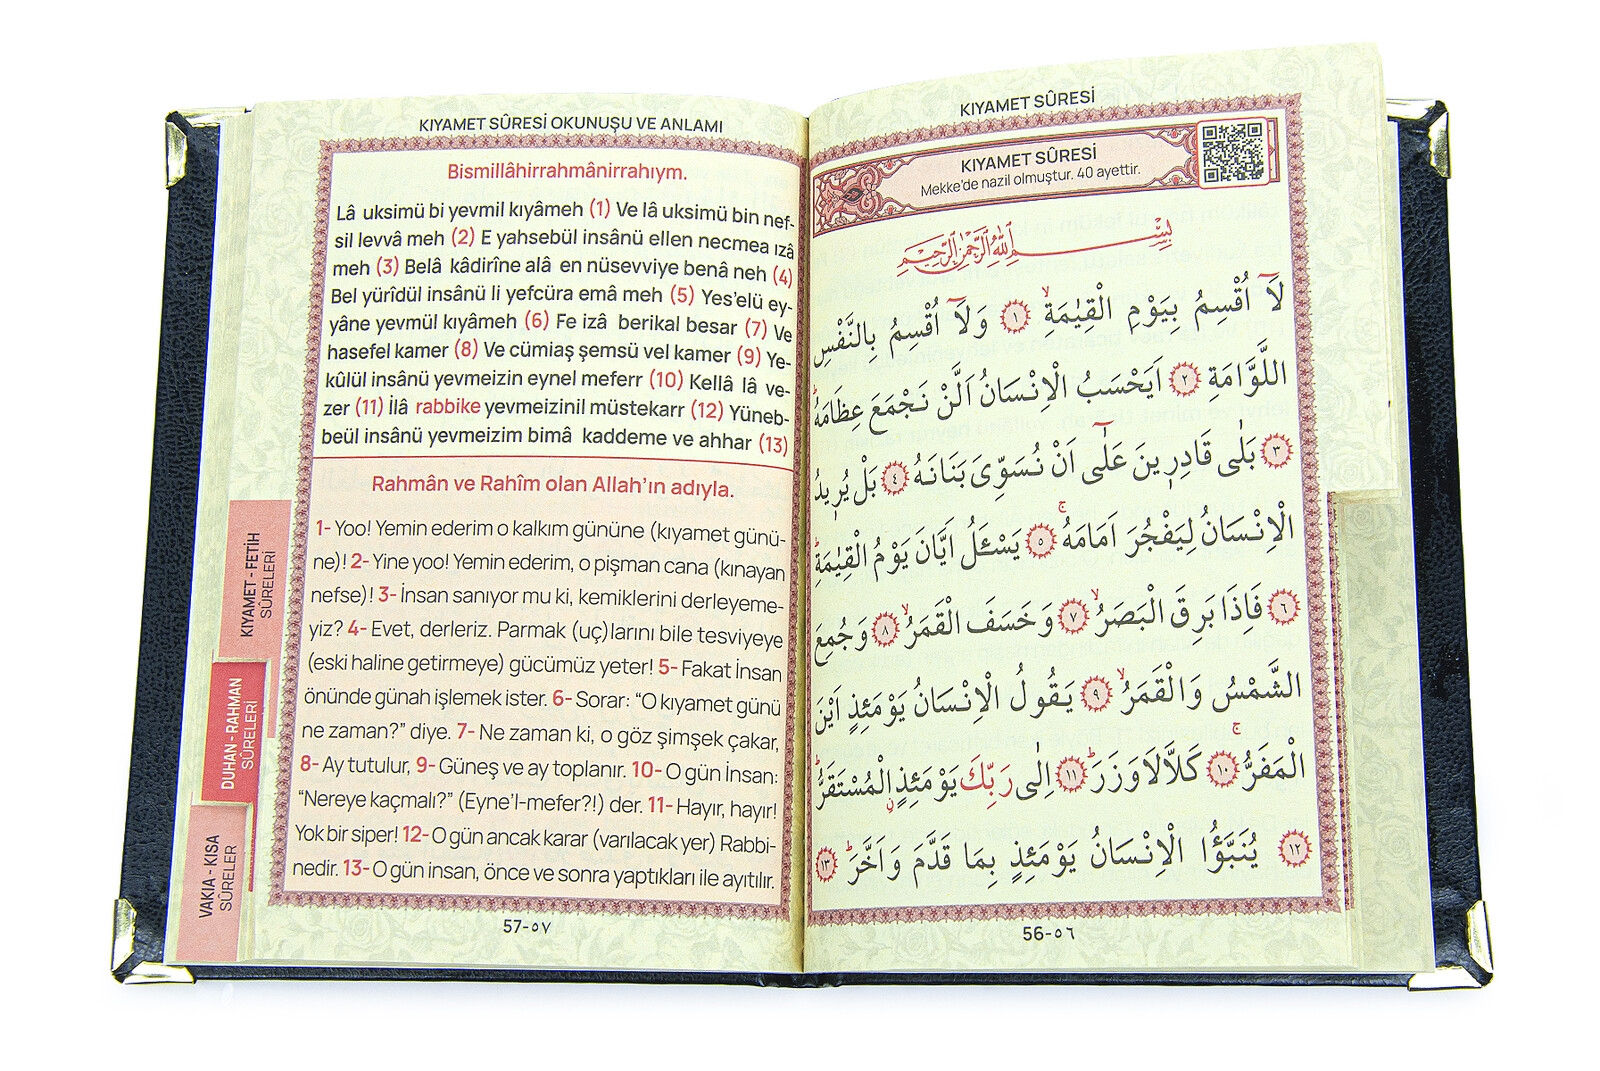 KIYAMET SÛRESİ
KIYAMET SÛRESİ
Mekke'de nazil olmuştur. 40 ayettir.
بِسْمِ اللّٰهِ الرَّحْمٰنِ الرَّحِيمِ
لَٓا اُقْسِمُ بِيَوْمِ الْقِيٰمَةِۙ ﴿١﴾ وَلَٓا اُقْسِمُ بِالنَّفْسِ
اللَّوَّامَةِ ﴿٢﴾ اَيَحْسَبُ الْاِنْسَانُ اَلَّنْ نَجْمَعَ عِظَامَهُۜ
﴿٣﴾ بَلٰى قَادِر۪ينَ عَلٰٓى اَنْ نُسَوِّىَ بَنَانَهُ ﴿٤﴾ بَلْ يُر۪يدُ
الْاِنْسَانُ لِيَفْجُرَ اَمَامَهُۚ ﴿٥﴾ يَسْـَٔلُ اَيَّانَ يَوْمُ الْقِيٰمَةِۜ
﴿٦﴾ فَاِذَا بَرِقَ الْبَصَرُۙ ﴿٧﴾ وَخَسَفَ الْقَمَرُۙ ﴿٨﴾ وَجُمِعَ
الشَّمْسُ وَالْقَمَرُۙ ﴿٩﴾ يَقُولُ الْاِنْسَانُ يَوْمَئِذٍ اَيْنَ
الْمَفَرُّۚ ﴿١٠﴾ كَلَّا لَا وَزَرَۜ ﴿١١﴾ اِلٰى رَبِّكَ يَوْمَئِذٍۨ الْمُسْتَقَرُّۜ
﴿١٢﴾ يُنَبَّؤُا الْاِنْسَانُ يَوْمَئِذٍ بِمَا قَدَّمَ وَاَخَّرَۜ ﴿١٣﴾
56-٥٦
KIYAMET SÛRESİ OKUNUŞU VE ANLAMI
Bismillâhirrahmânirrahıym.
Lâ uksimü bi yevmil kıyâmeh (1) Ve lâ uksimü bin nef-
sil levvâ meh (2) E yahsebül insânü ellen necmea ızâ
meh (3) Belâ kâdirîne alâ en nüsevviye benâ neh (4)
Bel yürîdül insânü li yefcüra emâ meh (5) Yes'elü ey-
yâne yevmül kıyâmeh (6) Fe izâ berikal besar (7) Ve
hasefel kamer (8) Ve cümiaş şemsü vel kamer (9) Ye-
kûlül insânü yevmeizin eynel meferr (10) Kellâ lâ ve-
zer (11) İlâ rabbike yevmeizinil müstekarr (12) Yüneb-
beül insânü yevmeizim bimâ kaddeme ve ahhar (13)
Rahmân ve Rahîm olan Allah'ın adıyla.
1- Yoo! Yemin ederim o kalkım gününe (kıyamet günü-
ne)! 2- Yine yoo! Yemin ederim, o pişman cana (kınayan
nefse)! 3- İnsan sanıyor mu ki, kemiklerini derleyeme-
yiz? 4- Evet, derleriz. Parmak (uç)larını bile tesviyeye
(eski haline getirmeye) gücümüz yeter! 5- Fakat İnsan
önünde günah işlemek ister. 6- Sorar: “O kıyamet günü
ne zaman?” diye. 7- Ne zaman ki, o göz şimşek çakar,
8- Ay tutulur, 9- Güneş ve ay toplanır. 10- O gün İnsan:
“Nereye kaçmalı?” (Eyne'l-mefer?!) der. 11- Hayır, hayır!
Yok bir siper! 12- O gün ancak karar (varılacak yer) Rabbi-
nedir. 13- O gün insan, önce ve sonra yaptıkları ile ayıtılır.
57-٥٧
KIYAMET - FETİH
SÛRELERİ
DUHAN - RAHMAN
SÛRELERİ
VAKIA - KISA
SÛRELER